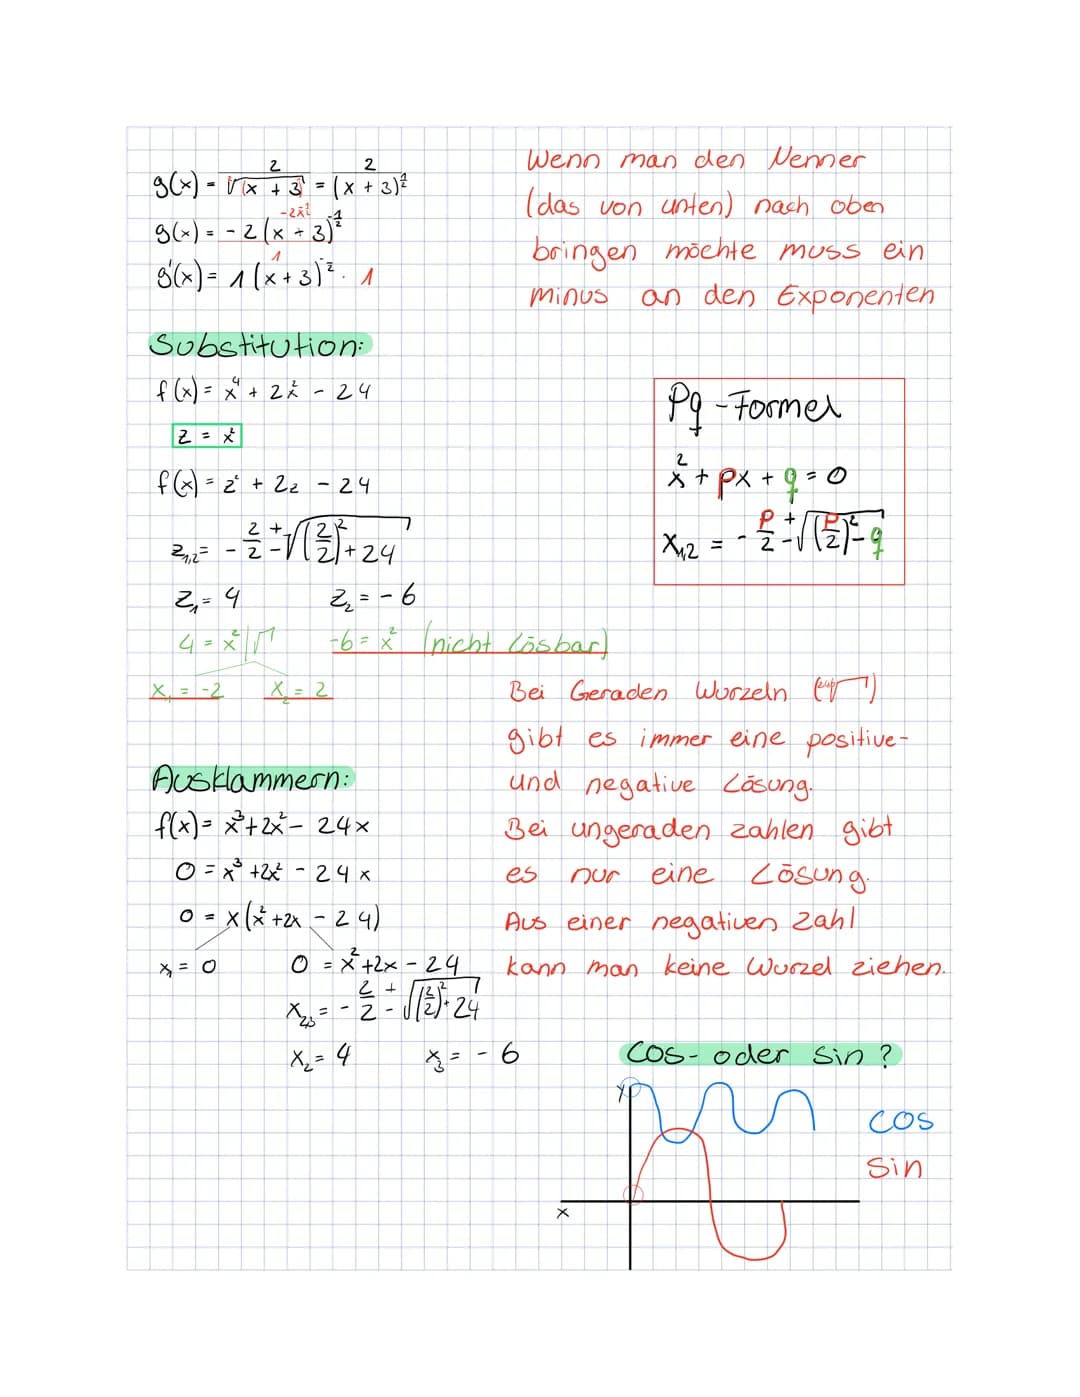 g(x) = 2/√(x + 3) = 2/(x + 3)^½
g(x) = - 2 (x + 3)^-½
g'(x) = 1 (x + 3) · 1
Wenn man den Nenner
(das von unten) nach oben
bringen möchte muss ein
minus an den Exponenten
Substitution:
f(x) = x⁴ + 2x² - 24
z = x²
f(x) = z² + 2z - 24
z₁,₂ = - 2/2 ± √((2/2)² + 24)
z₁ = 4 z₂ = - 6
4 = x² |√ -6 = x² (nicht lösbar)
x₁ = -2 x₂ = 2
Pq - Formel
x² + px + q = 0
x₁,₂ = - p/2 ± √((p/2)² - q)
Bei Geraden Wurzeln
gibt es immer eine positive-
und negative Lösung.
Bei ungeraden zahlen gibt
es nur eine Lösung.
Aus einer negativen Zahl
kann man keine Wurzel ziehen.
Ausklammern:
f(x) = x³ + 2x² - 24x
0 = x³ + 2x² - 24x
0 = x (x² + 2x - 24)
x₁ = 0 0 = x² + 2x - 24
x₂,₃ = - 2/2 ± √((2/2)² + 24)
x₂ = 4 x₃ = - 6
Cos- oder Sin ?
y
cos
sin
x